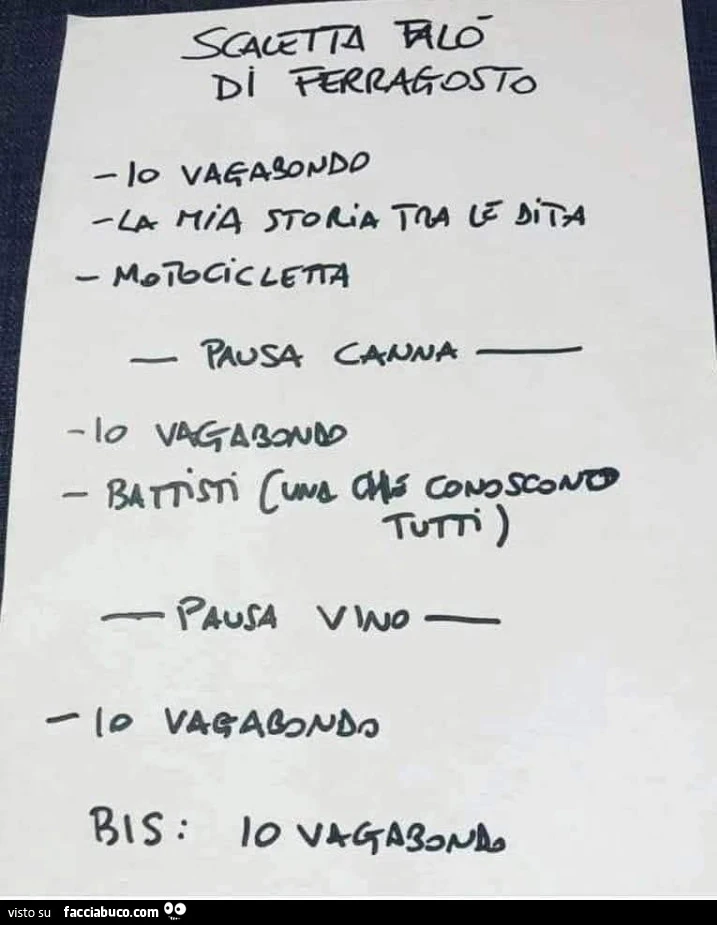 SCALETTA FALÒ
DI FERRAGOSTO
- IO VAGABONDO
- LA MIA STORIA TRA LE DITA
- MOTOCICLETTA
— PAUSA CANNA —
- IO VAGABONDO
- BATTISTI (UNA CHE CONOSCONO
TUTTI)
— PAUSA VINO —
- IO VAGABONDO
BIS: IO VAGABONDO
visto su facciabuco.com